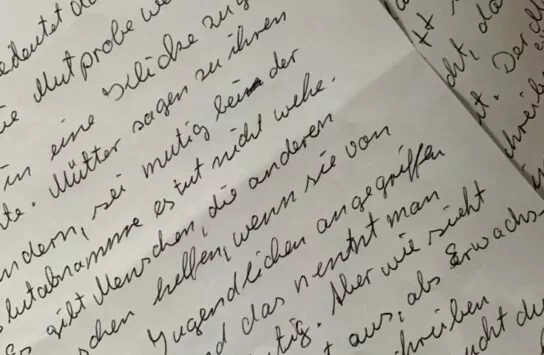 bedeutet
ie Mutprobe we
in eine Clique zu g
te. Mütter sagen zu ihren
ndern, sei mutig beim der
lutabnamme es tut nicht wehe.
s gibt Menschen, die anderen
schen helfen, wenn sie von
Jugendlichen angegriffen
nd das nennt man
utig. Aber wie sieht
t aus, als Erwachs-
schreiben
ucht du
ht, da
t. Der M
hreibe